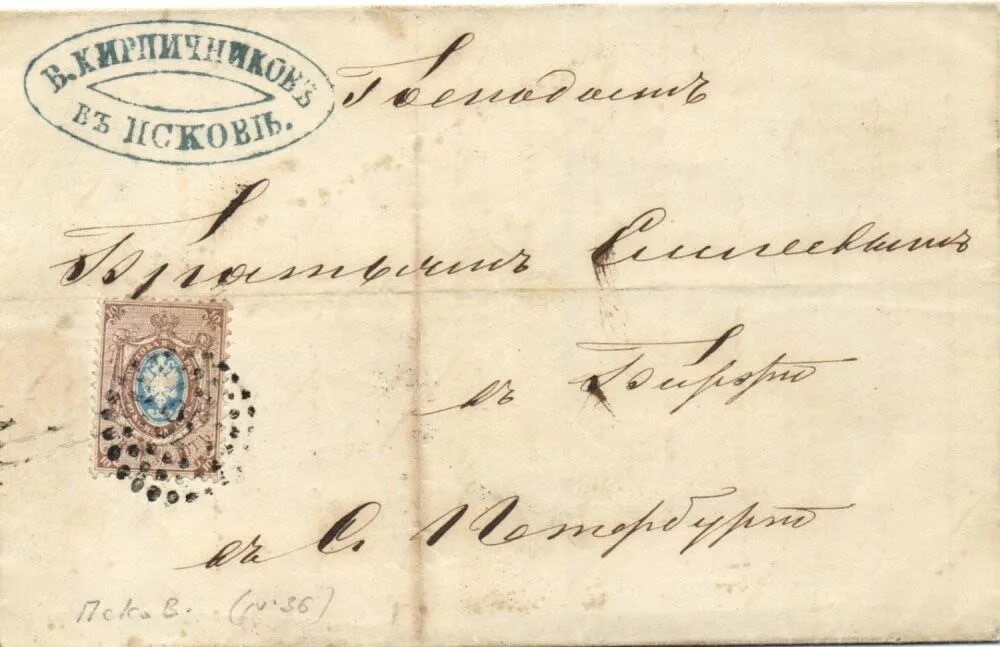 В. КИРПИЧНИКОВЪ
ВЪ ПСКОВѢ.
Господамъ
Братьямъ Елисеевымъ
въ Биржѣ
въ С. Петербургѣ
Псков. (№ 36)